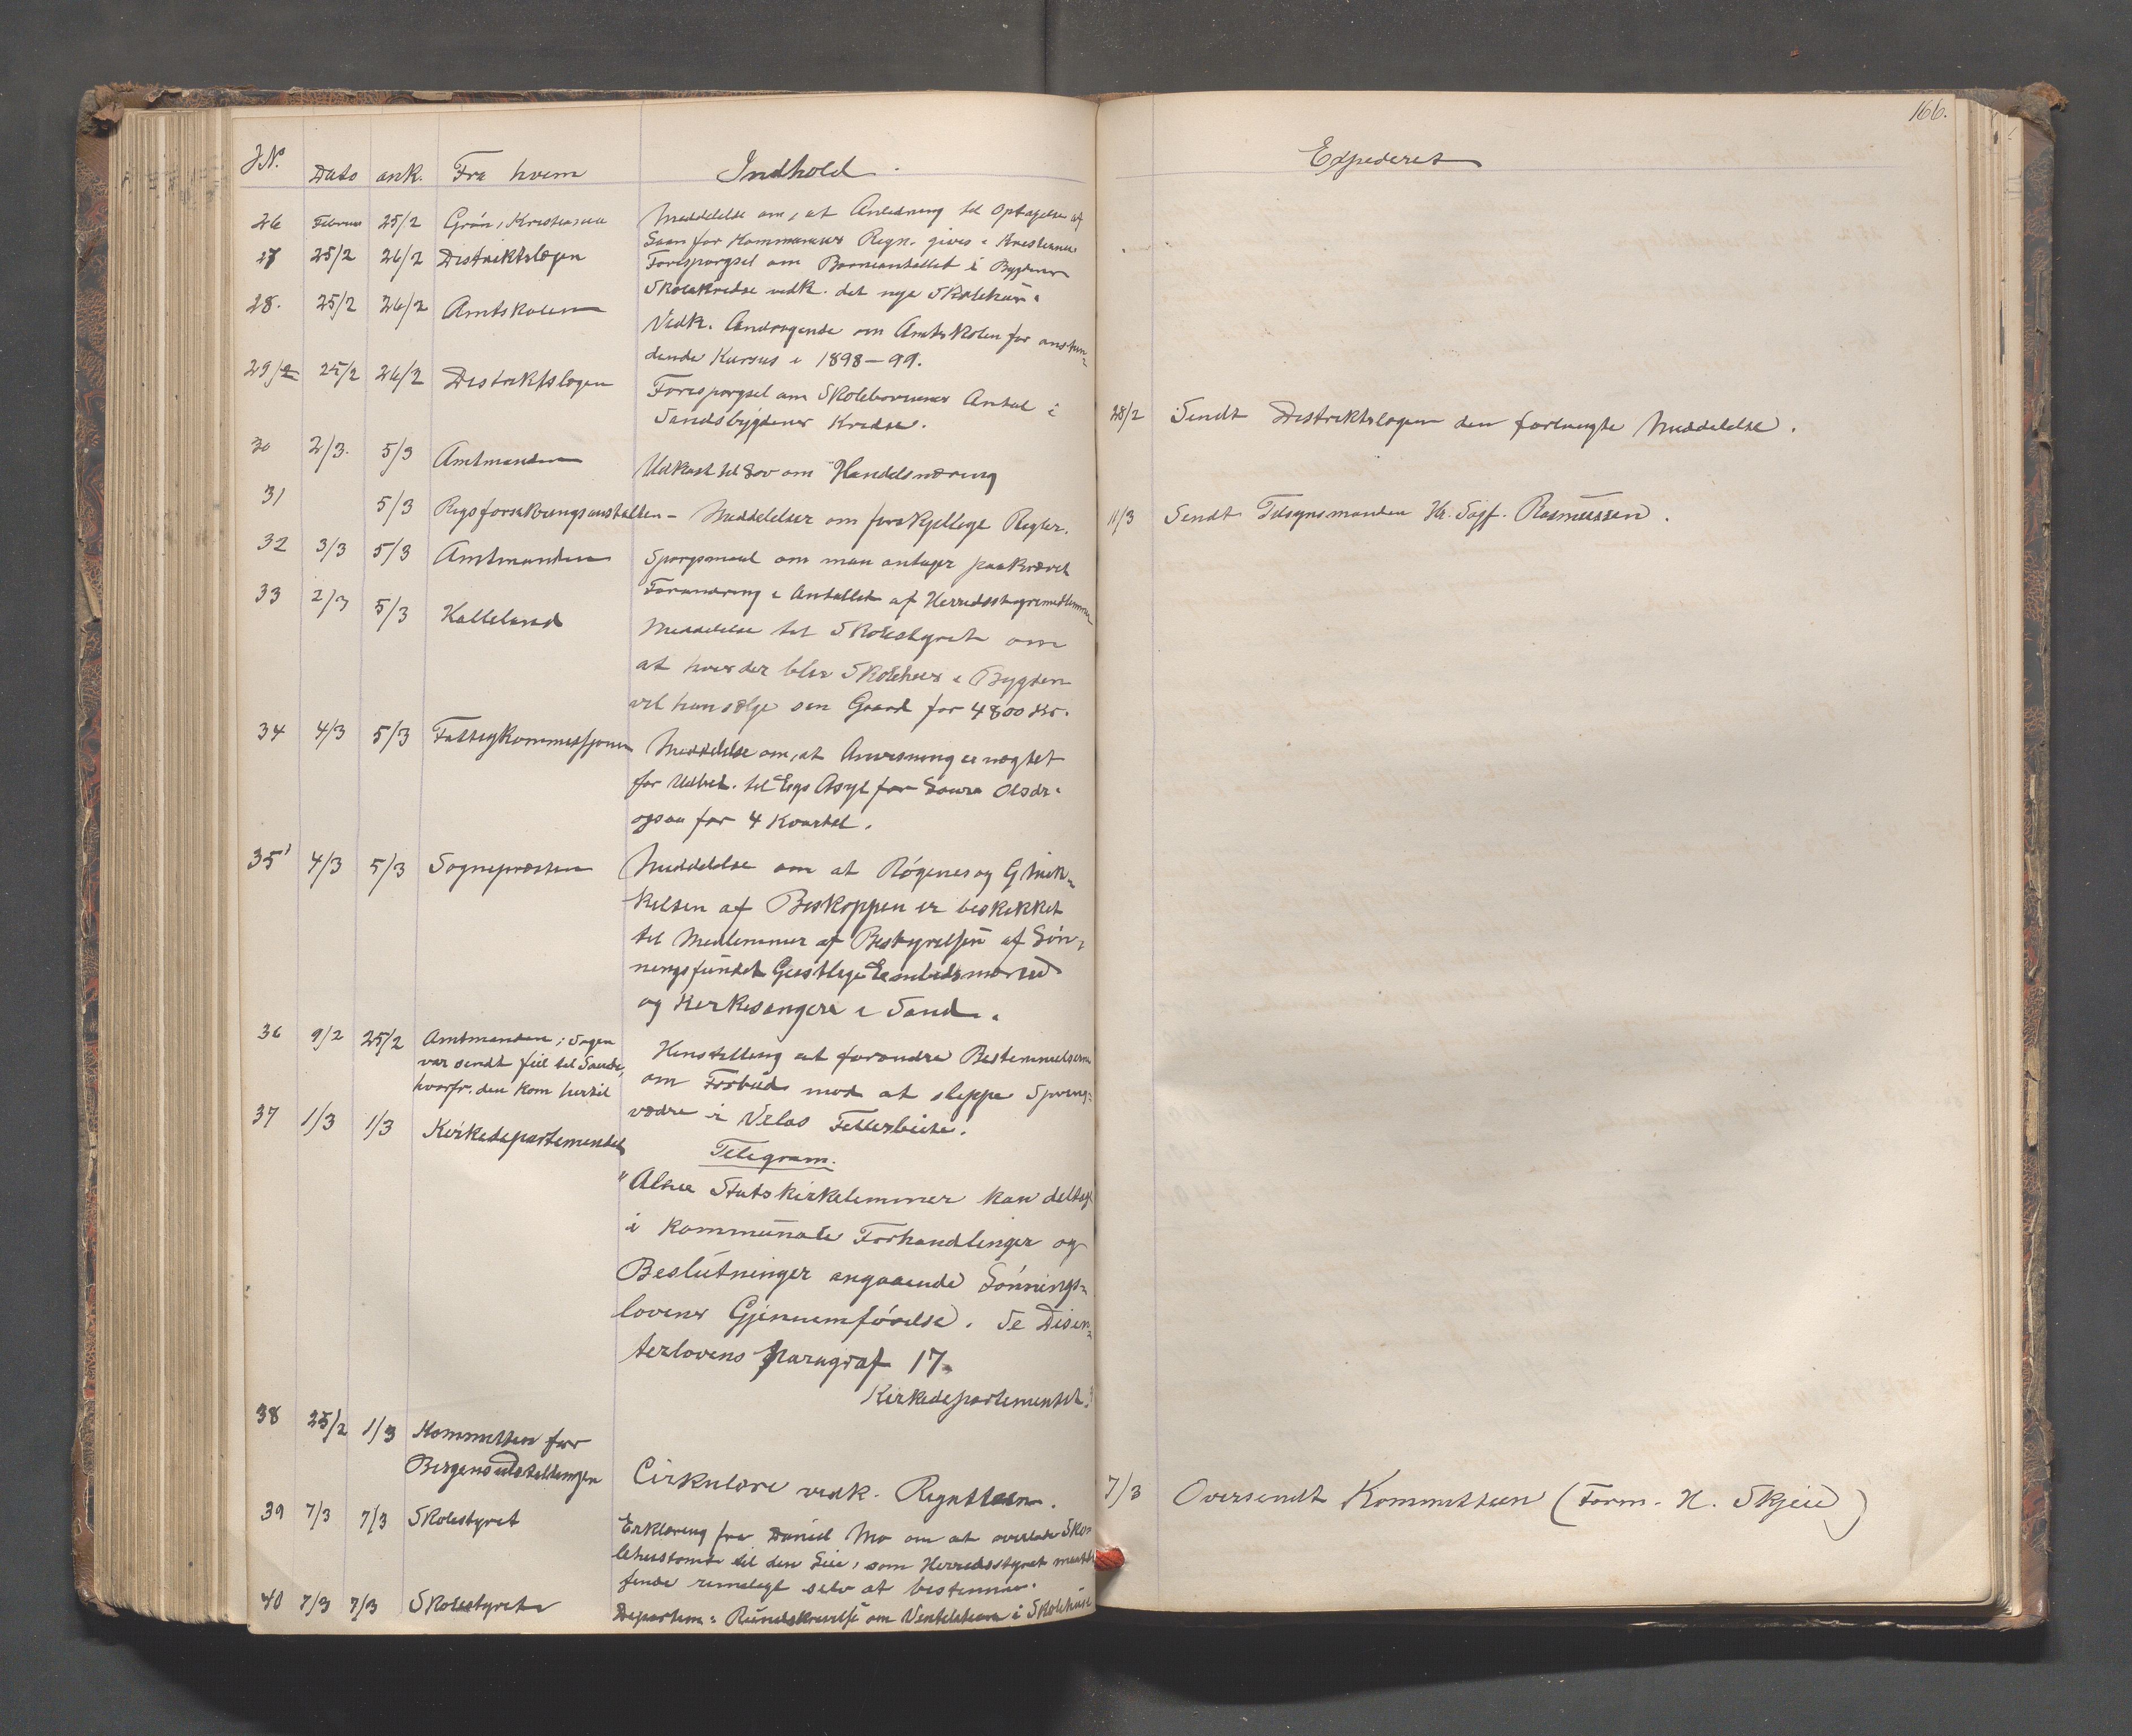 166.
J.N. Dato ank. Fra hvem Indhold. Expederet
26 Februar 25/2 Grön, Kristiania Meddelelse om, at Anledning til Optagelse af
Laan for Kommunens Regn. gives i Kristiania
27 25/2 26/2 Distriktslægen Forespørgsel om Barneantallet i Bygdenes
Skolekredse vedk. det nye Skolehus.
28. 25/2 26/2 Amtskolen Vedk. Andragende om Amtskolen for anstun-
dende Kursus i 1898-99.
29 25/2 26/2 Distriktslægen Forespørgsel om Skolebørnenes Antal i
Sandsbygdens Kredse.
28/2 Sendt Distriktslægen den forlangte Meddelelse.
30 2/3. 5/3 Amtmanden Udkast til Lov om Handelsnæring
31 5/3 Rigsforsikringsanstalten - Meddelelser om forskjellige Regler.
11/3 Sendt Tilsynsmanden Hr. Sagf. Rasmussen.
32 3/3 5/3 Amtmanden Spørgsmaal om man antager paakrævet
Forandring i Antallet af Herredsstyremedlemmer
33 2/3 5/3 Kalleland Meddelelse til Skolestyret om
at hvis der blir Skolehus i Bygden
vil han sælge sin Gaard for 4800 Kr.
34 4/3 5/3 Fattigkommissjonen Meddelelse om, at Anvisning er nægtet
for Udbet. til Eigs Asyl for Laura Olsdr.
ogsaa for 4 Kvartal.
35 4/3 5/3 Sognepræsten Meddelelse om at Røgenes og G Mik-
kelsen af Biskoppen er beskikket
til Medlemmer af Bestyrelsen af Løn-
ningsfundet Geistlige Embedsmænd
og Kirkesangere i Sand.
36 9/2 25/2 Amtmanden; Sagen
var sendt feil til Saude,
hvorfr. den kom hertil
Henstilling at forandre Bestemmelserne
om Forbud mod at sleppe Spring-
vædre i Velas Fellesbeite.
37 1/3 1/3 Kirkedepartementet
Telegram.
"Alene Statskirkelemmer kan deltage
i kommunale Forhandlinger og
Beslutninger angaaende Lønnings-
lovens Gjennemförelse. Se Disen-
terlovens Paragraf 17.
Kirkedepartementet."
38 25/2 1/3 Kommitteen for
Bergensudstillingen Cirkulære vedk. Reynsteen.
7/3 Oversendt Kommitteen (Form. H. Skjeie)
39 7/3 7/3 Skolestyret Erklæring fra Daniel Mo om at overlade Sko-
lehustomten til den Leie, som Herredsstyret maatte
finde rimeligt selv at bestemme.
40 7/3 7/3 Skolestyret Departem: Rundskrivelse om Ventilation i Skolehuse